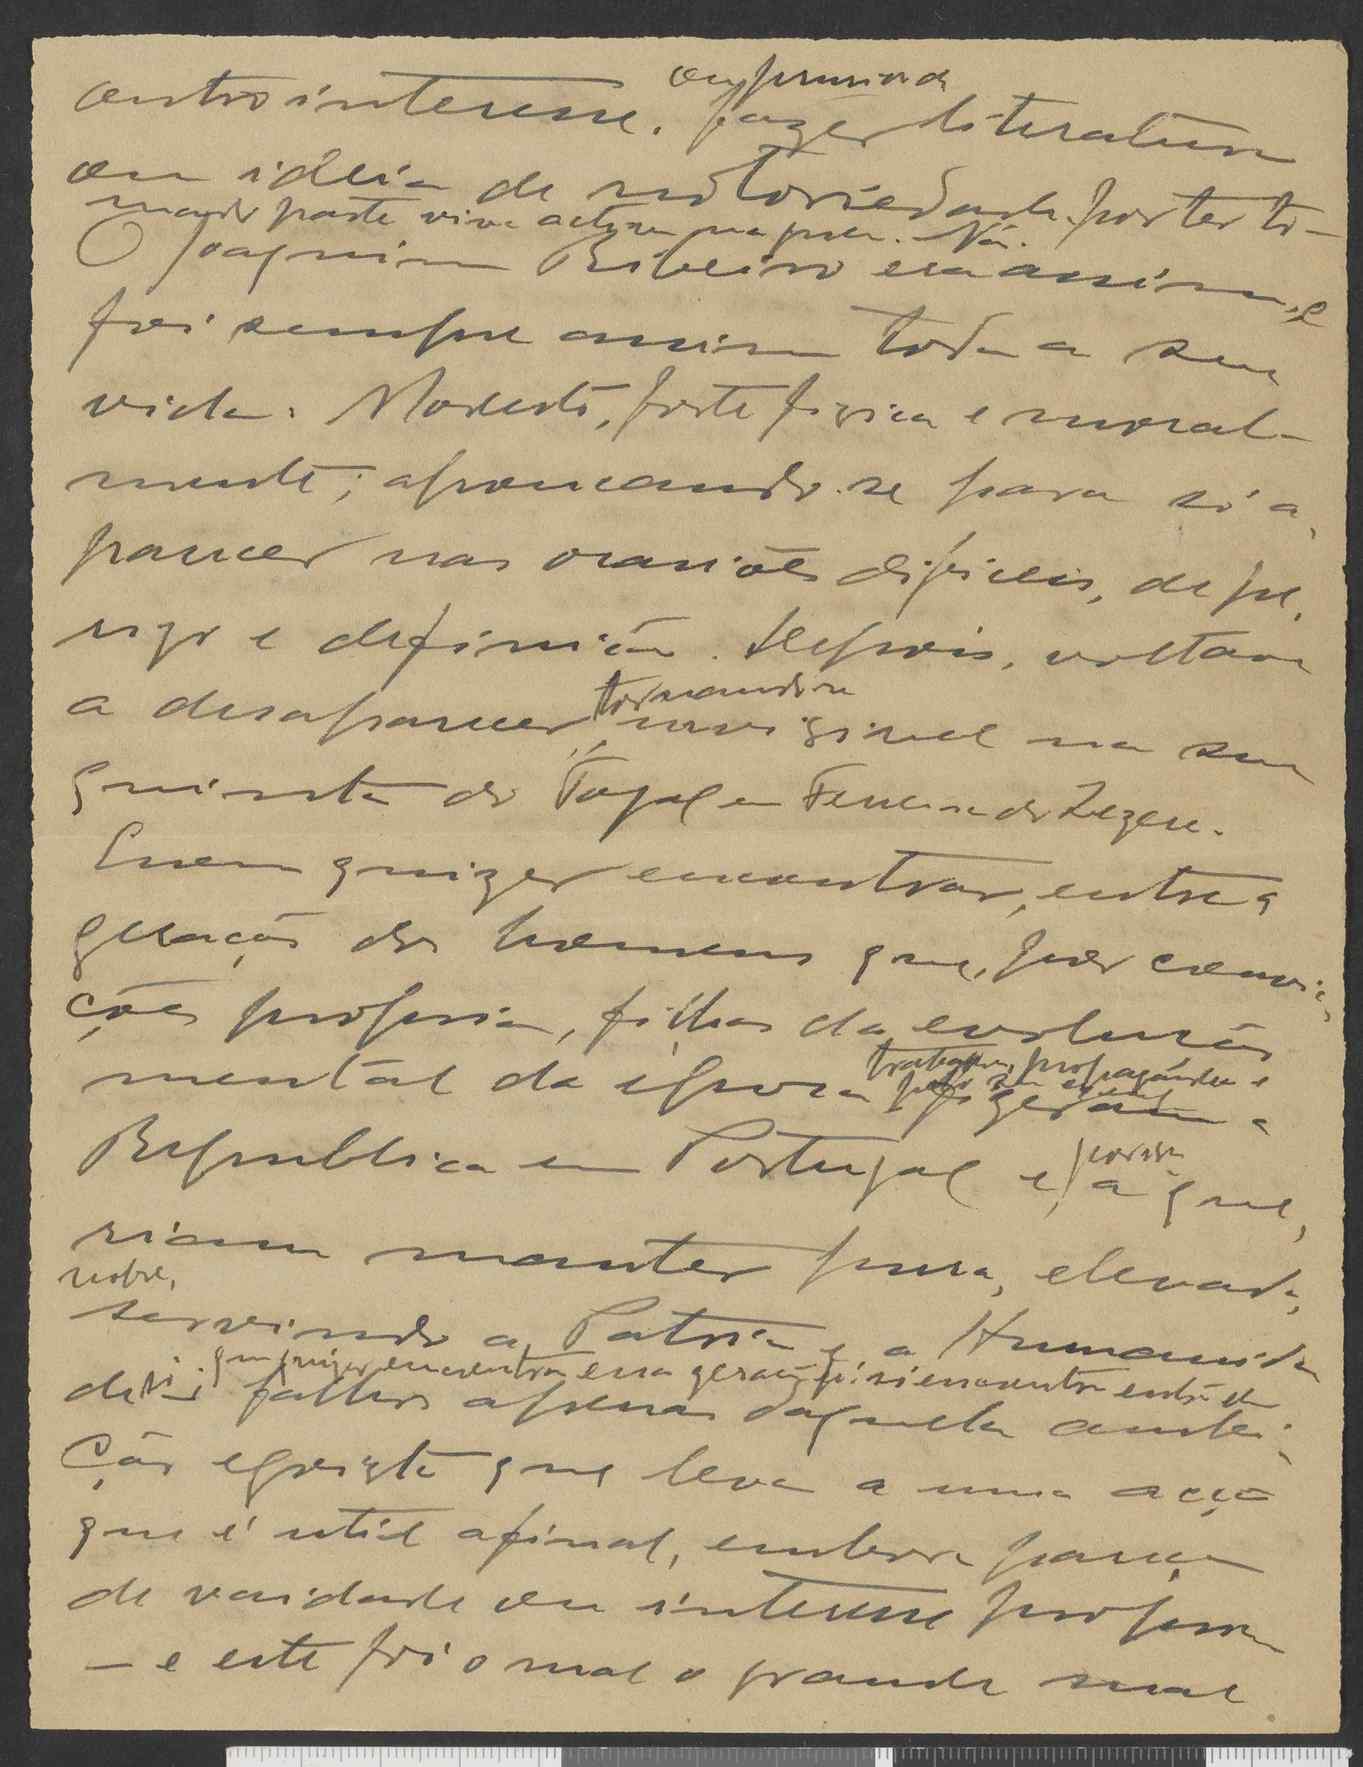 outro interesse.
fazer literatura
ou ideia de notoriedade por ter to-
mado parte viva na Não.
O Joaquim Ribeiro era assim, e
foi sempre assim toda a sua
vida. Modesto, forte fizica e moral-
mente; apoucando-se para só a-
parecer nas ocasiões dificeis, de pe-
rigo e definição. Depois, voltava
tornando-se
a desaparecer invizivel na sua
quinta do Tojal em Ferreira do Zezere.
Quem quizer encontrar, entre a
geração dos homens que, por convi-
ções proprias, filhas da evolução
trabalho, propaganda e
mental da epoca fizeram a
Republica em Portugal e a que-
riam manter pura, elevada,
nobre,
servindo a Patria e a Humanida-
quem quizer encontrar essa geração si encontra
de falhos apenas daquela ambi-
ção egoista que leva a uma acção
que é util afinal, embora pareça
de vaidade ou interesse proprio
– e este foi o mal o grande mal